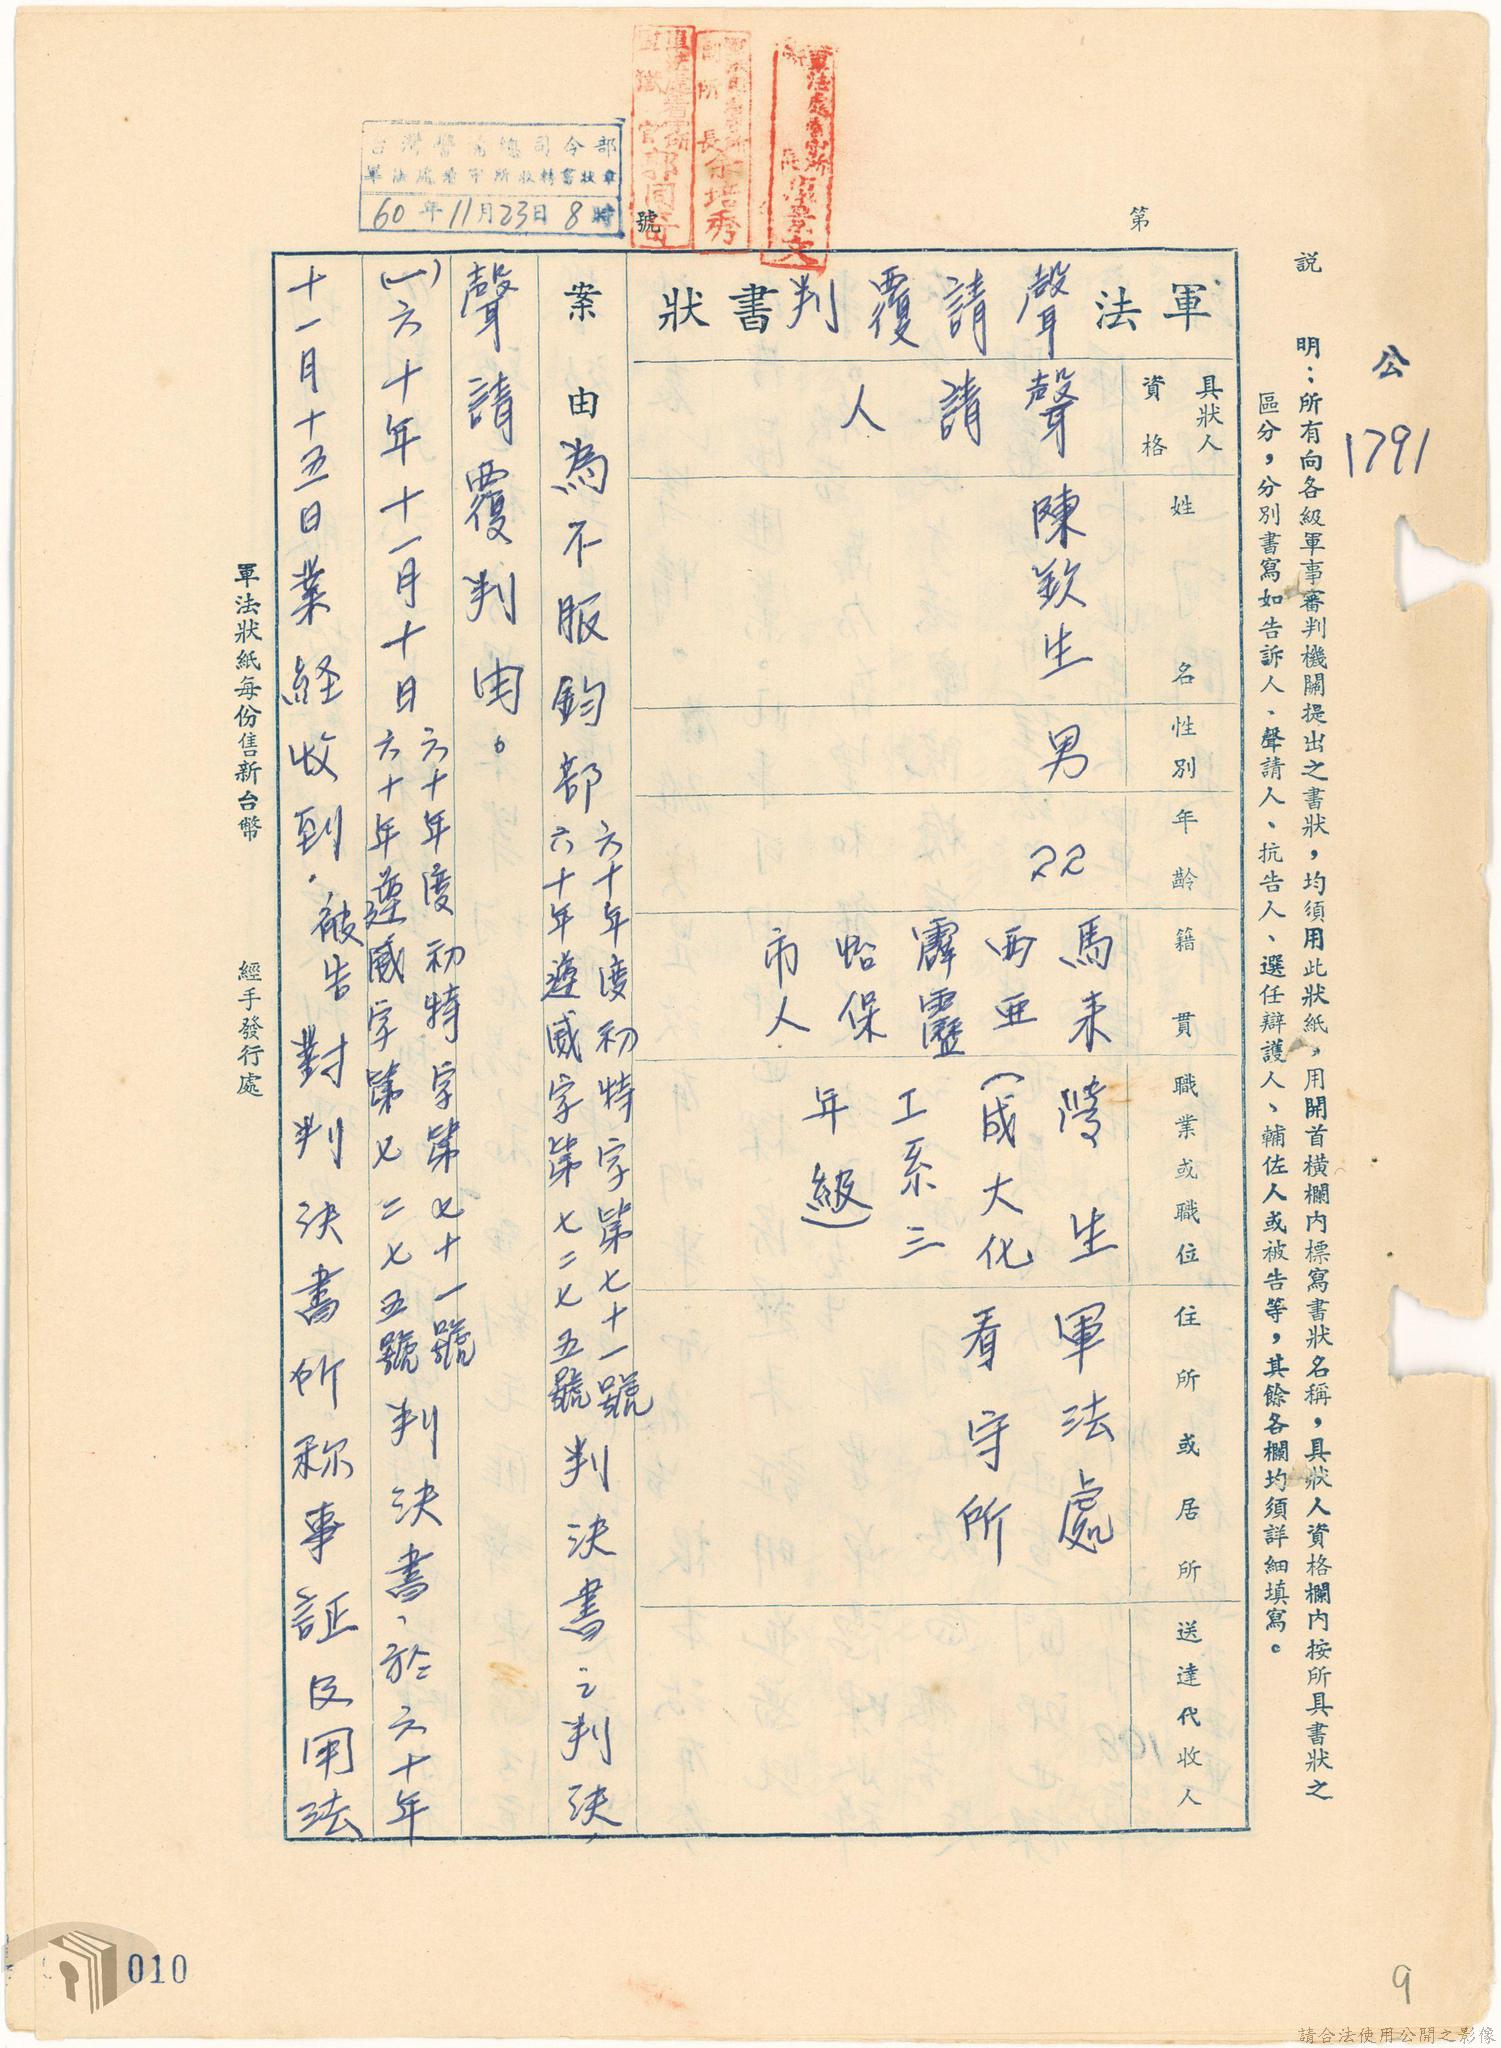 公
1791
說　明：所有向各級軍事審判機關提出之書狀，均須用此狀紙，用開首橫欄內標寫書狀名稱，具狀人資格欄內按所具書狀之
區分，分別書寫如告訴人、聲請人、抗告人、選任辯護人、輔佐人或被告等，其餘各欄均須詳細填寫。
第
號
軍法聲請覆判書狀
具狀人資格
聲請人
姓名
陳欽生
性別
男
年齡
22
籍貫
馬来
西亜
霹靂
怡保
市人
職業或職位
学生
(成大化
工系三
年級)
住所或居所
軍法處
看守所
送達代收人
案由為不服鈞部六十年度初特字第七十一號
六十年遵威字第七二七五號判決書之判決，
聲請覆判由。
(一)六十年十一月十日六十年度初特字第七十一號
六十年遵威字第七二七五號判決書，於六十年
十一月十五日業経收到．被告對判決書所称事証及用法
軍法狀紙每份售新台幣　經手發行處
台灣警備總司令部
軍法處看守所收轉書狀章
60年11月23日8時
軍法處看守所
副所長余培秀
010
9
請合法使用公開之影像